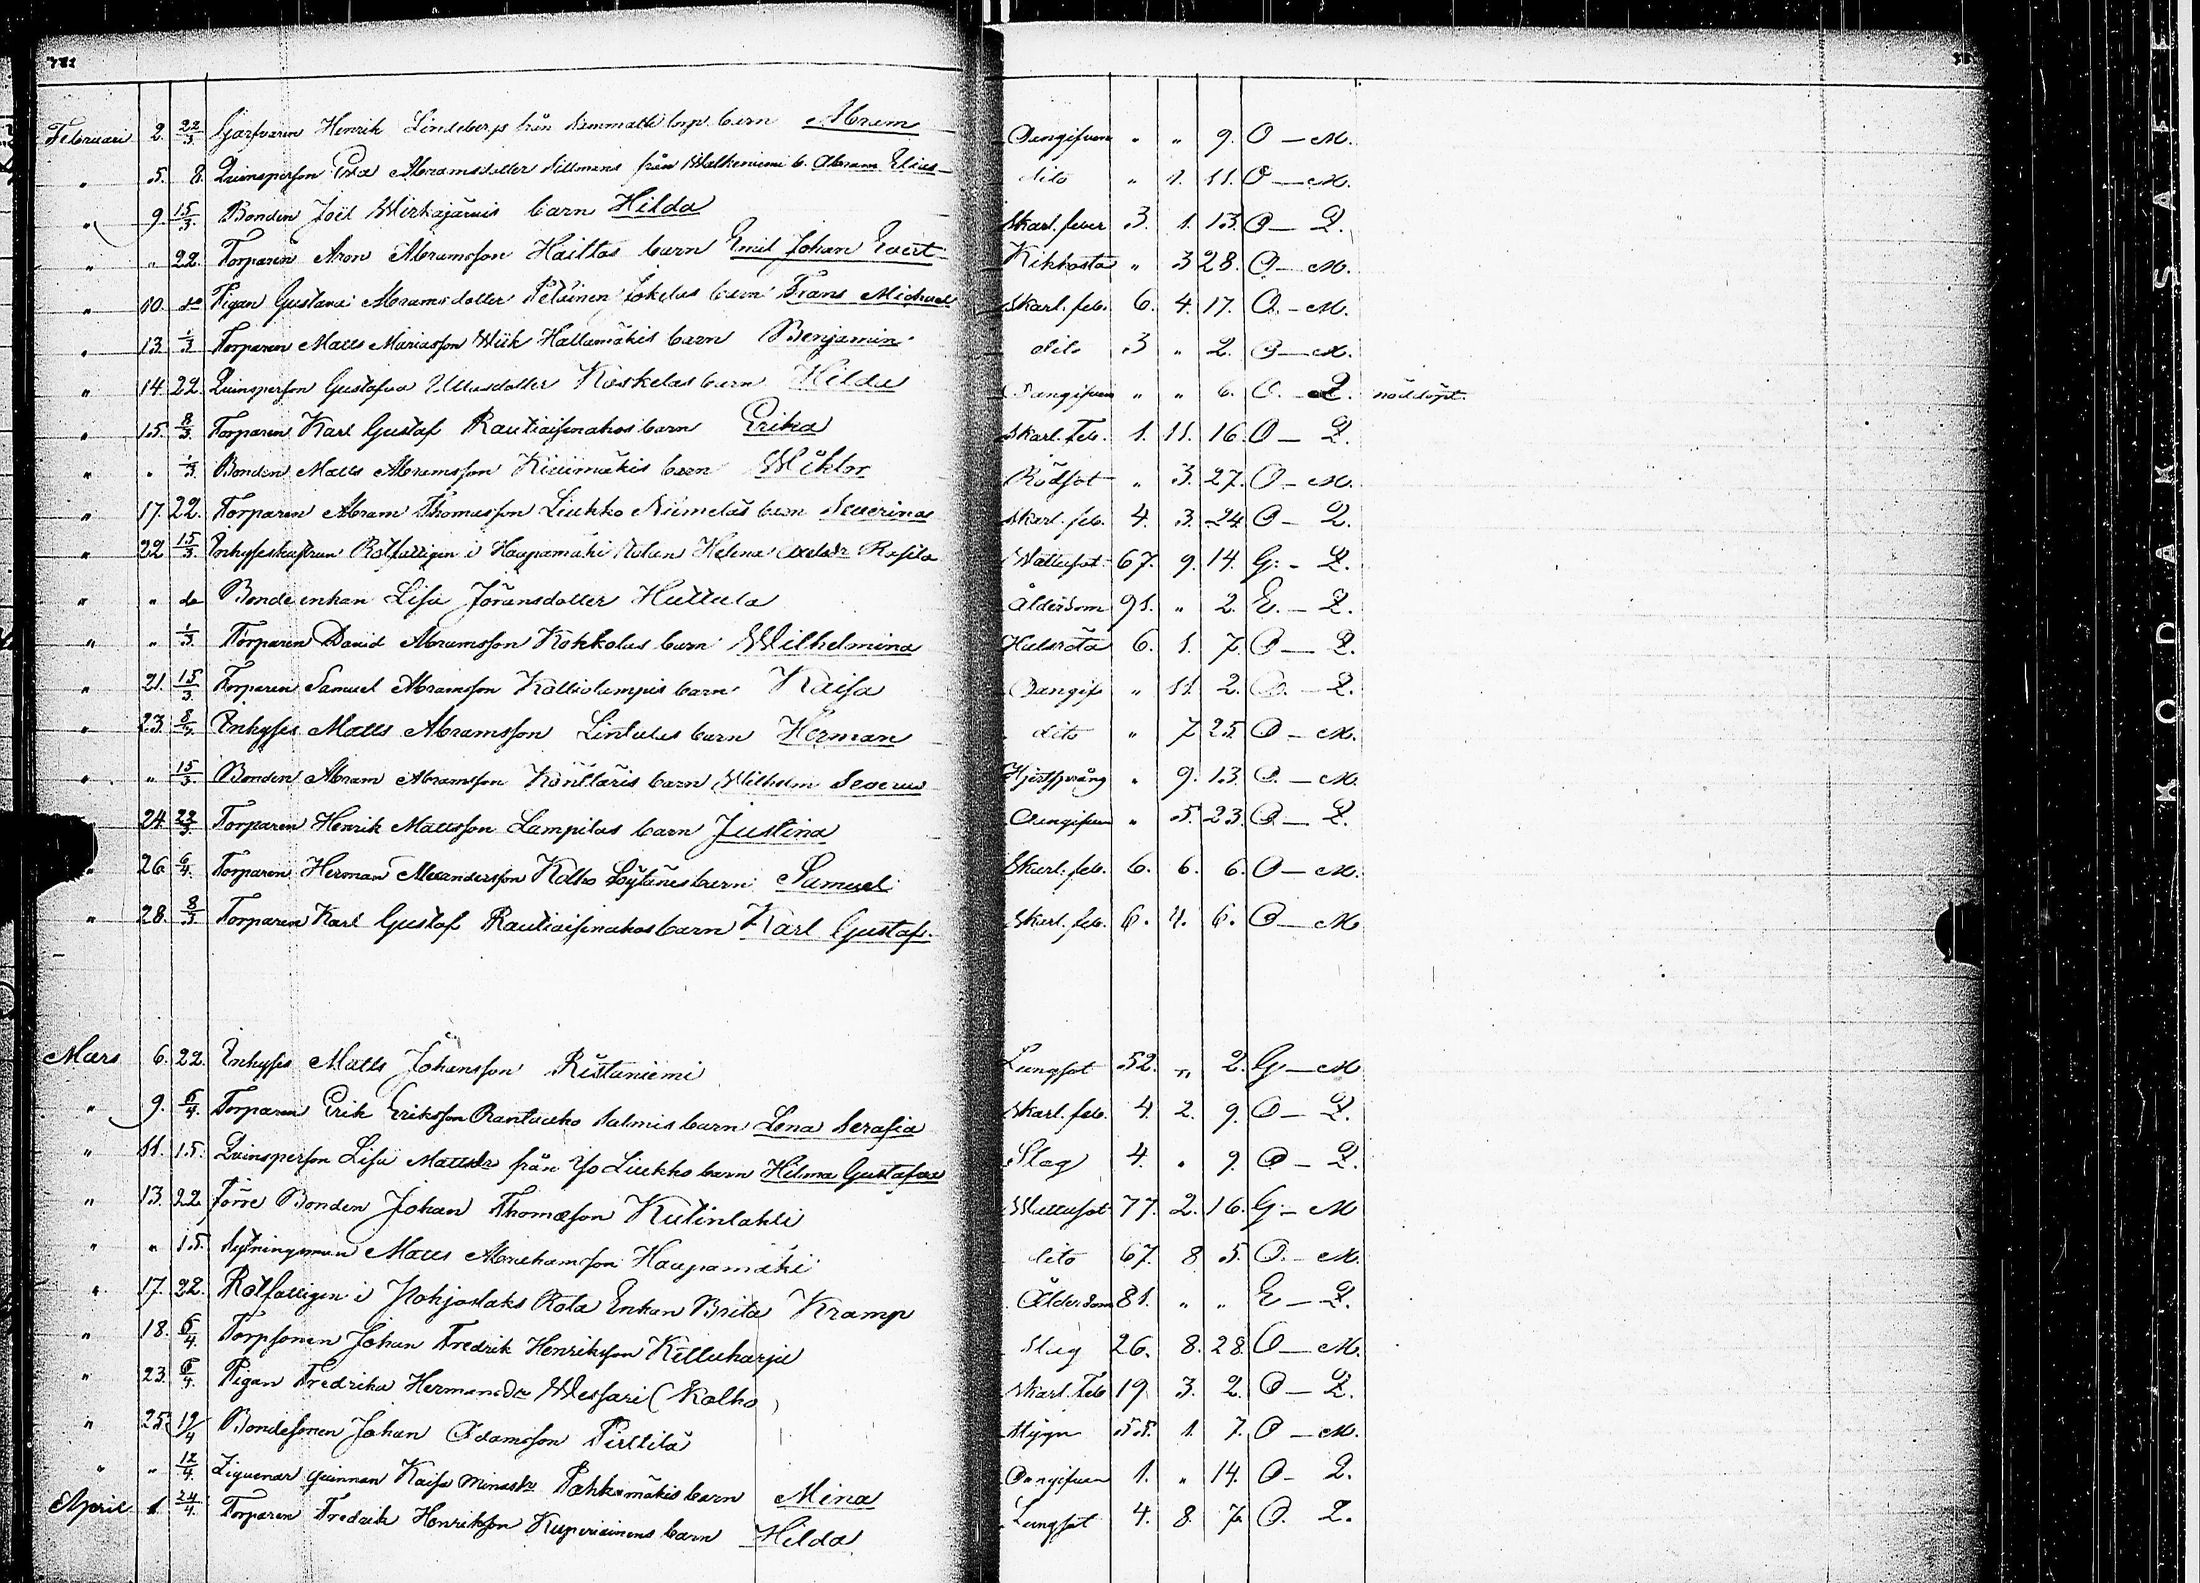 Februari 2. 22/3 Garfvaren Henrik Lindebergs från Nimmatti torp barn Abram Oangifven " " 9. O – M.
" 5. 8. Qvinsperson Eva Abramsdotter Sillmans från Walkeniemi b. Abram Elias dito " 1. 11. O – M.
" 9. 15/3 Bonden Joel Wirkajärvis barn Hilda Skarl. feber 3. 1. 13. O – Q.
" " 22. Torparen Aron Abramsson Hailtas barn Emil Johan Evert Kikhosta " 3 28. O – M.
" 10. do Pigan Gustava Abramsdotter Petäinen Jokelas barn Frans Michael Skarl. feb. 6. 4. 17. O – M.
" 13. 1/3 Torparen Matts Mariasson Wiik Hallamäkis barn Benjamin dito 3 " 2. O – M.
" 14. 22. Qvinsperson Gustafva Ullasdotter Koskelas barn Hilda Oangifven " " 6. O. – Q. nöddöpt.
" 15. 8/3 Torparen Karl Gustaf Rautiaisenahos barn Erika Skarl. Feb. 1. 11. 16. O – Q.
" " 1/3 Bonden Matts Abramsson Kiiimäkis barn Wiktor Rödsot " 3. 27. O – M.
" 17. 22. Torparen Abram Thomasson Liukko Niemeläs barn Severina Skarl. feb. 4. 3. 24. O – Q.
" 22 15/3 Inhyseshustrun Rotfattigen i Haapamäki Rotan Helena Rosila Wattusot 67. 9. 14. G. – Q.
" " do Bondeenkan Lisa Jöransdotter Huttula Ålderdom 91. " 2. E. – Q.
" " 1/3 Torparen David Abramsson Kokkolas barn Wilhelmina Halsröta 6. 1. 7. O – Q.
" 21. 15/3 Torparen Samuel Abramsson Kalliolampis barn Kaisa Oangif " 11 2. O. – Q.
" 23. 8/3 Inhyses Matts Abramsson Lintulas barn Herman dito " 7 25 O – M.
" " 15/3 Bonden Abram Abramsson Könttäris barn Wilhelm Severus Hjertsprång " 9. 13. O. – M.
" 24 22/3 Torparen Henrik Mattsson Lampilas barn Justina Oangifven " 5. 23. O – Q.
" 26 6/4. Torparen Herman Alexandersson Kolho Löytänes barn Samuel Skarl. feb. 6. 6. 6. O – M.
" 28. 8/3 Torparen Karl Gustaf Rautiaisenahos barn Karl Gustaf. Skarl. feb. 6. 4. 6. O – M
Mars 6. 22. Inhyses Matts Johansson Ristaniemi Lungsot 52. " 2. G – M
" 9. 6/4. Torparen Erik Eriksson Rantaaho Salmis barn Lena Serafia Skarl. feb. 4. 2. 9. O – Q.
" 11. 15. Qvinsperson Lisa Mattsdr från Yo Liukko barn Hilma Gustafva Slag 4. " 9. O – Q.
" 13. 22 förre Bonden Johan Thomasson Kutinlahti Wattusot 77. 2. 16. G – M
" " 15. Sytningsman Matts Abrahamsson Haapamäki dito 67. 8 5. O. – M.
" 17. 22. Rotfattigen i Pohjaslaks Rota Enkan Brita Kramp Ålderdom 81. " " E – Q.
" 18. 6/4 Torpsonen Johan Fredrik Henriksson Killuharju Slag 26. 8. 28. O – M.
" 23. 6/4. Pigan Fredrika Hermansdr Wessari (Kolho) Skarl. Feb 19. 3. 2. O – Q.
" 25. 12/4 Bondesonen Johan Adamsson Pirttilä Stygn 55. 1. 7. O – M.
" " 12/4. Ziguenar qvinnan Kaisa Minasdr Pahkamäkis barn Mina Oangifven 1. " 14. O – Q.
April 1. 24/4 Torparen Fredrik Henriksson Kuperiainens barn Hilda Lungsot 4. 8. 7. O. Q.